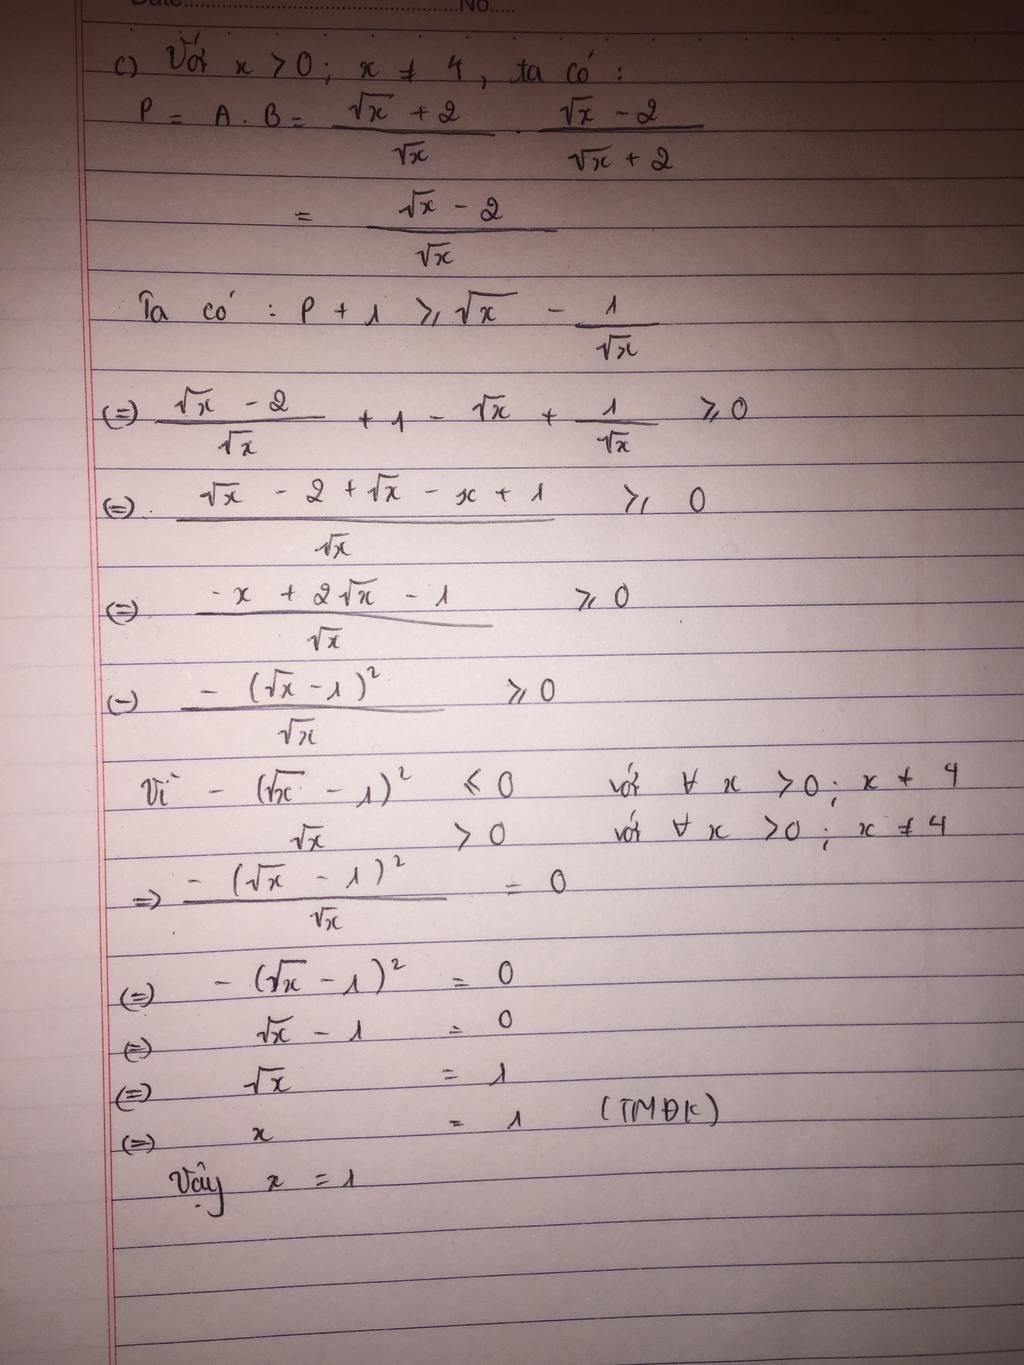 Date..........No.....
c) Với x > 0 ; x ≠ 4 , ta có :
P = A . B = (√x + 2)/√x . (√x - 2)/(√x + 2)
= (√x - 2)/√x
Ta có : P + 1 ⩾ √x - 1/√x
(=) (√x - 2)/√x + 1 - √x + 1/√x ⩾ 0
(=) (√x - 2 + √x - x + 1)/√x ⩾ 0
(=) (-x + 2√x - 1)/√x ⩾ 0
(-) (-(√x - 1)²)/√x ⩾ 0
Vì -(√x - 1)² ⩽ 0 với ∀ x > 0 ; x ≠ 4
√x > 0 với ∀ x > 0 ; x ≠ 4
=> (-(√x - 1)²)/√x = 0
(=) -(√x - 1)² = 0
(=) √x - 1 = 0
(=) √x = 1
(=) x = 1 (TMĐK)
Vậy x = 1